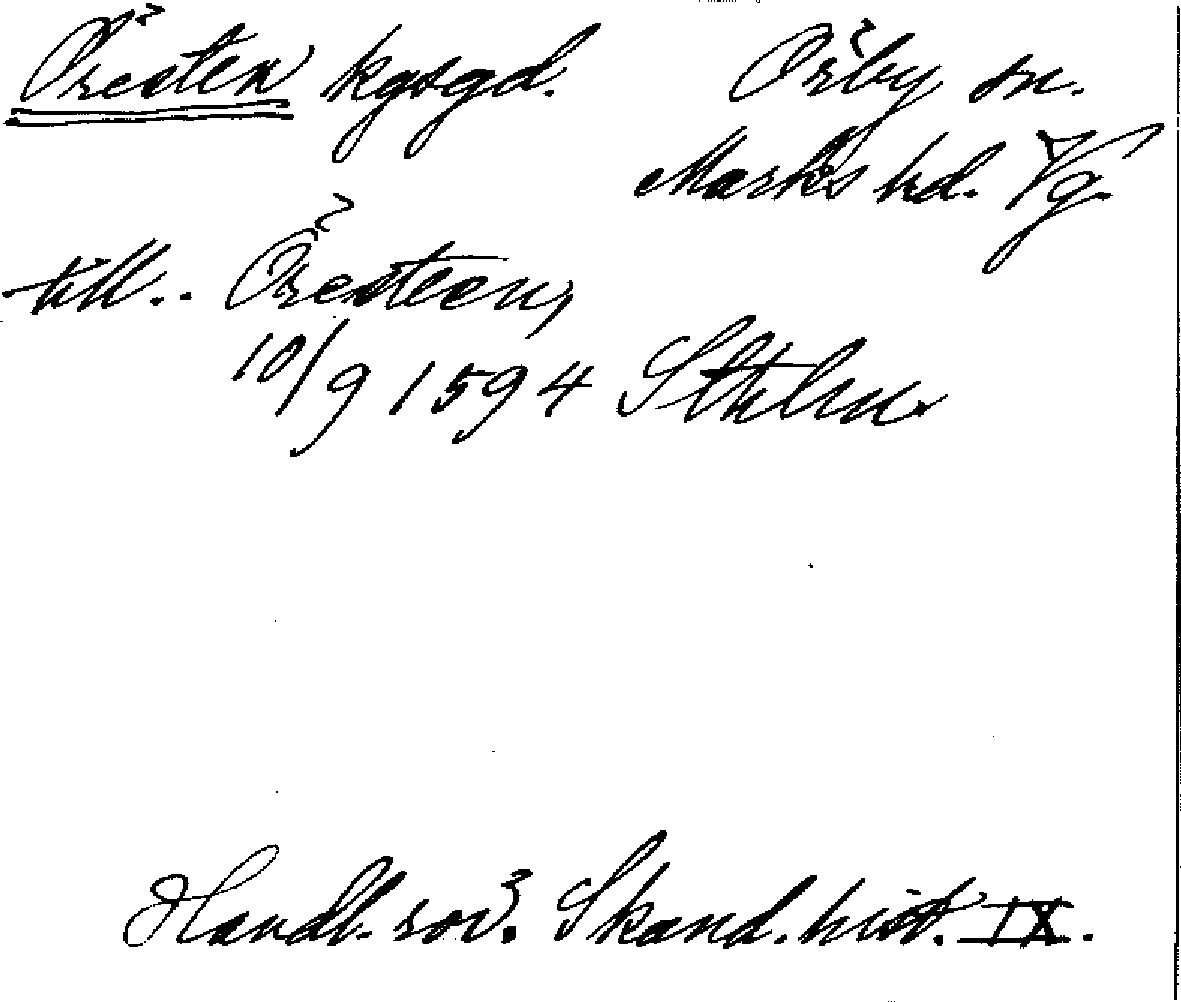 Öresten kgsgd. Örby sn.
Marks hd. Vg.
till.. Öresteen,
10/9 1594 Sthlm.
Handl. rör. Skand. hist. IX.